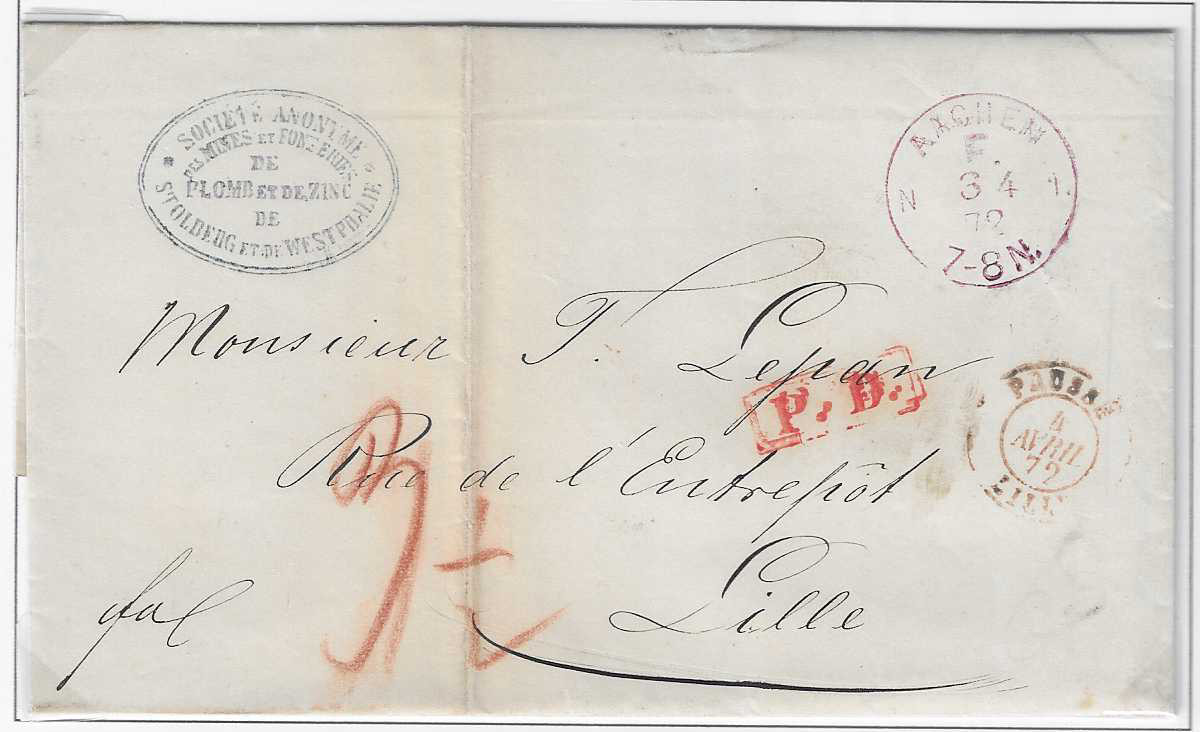 * SOCIÉTÉ ANONYME *
DES MINES ET FONDERIES
DE
PLOMB ET DE ZINC
DE
STOLBERG ET DE WESTPHALIE
AACHEN
F.
3 4
N 1.
72
7-8 N.
Monsieur T. Lepan
P. D.
PRUSSE
4
AVRIL
72
LILLE
Rue de l'Entrepôt
Lille